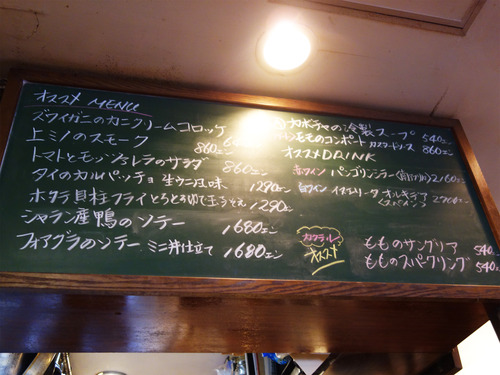 オススメ MENU
ズワイガニのカニクリームコロッケ
上ミノのスモーク 860エン
トマトとモッツァレラのサラダ 860エン
タイのカルパッチョ 生ウニ風味 1290エン
ホタテ貝柱フライとろとろゆで玉子ぞえ 1290エン
シャラン産鴨のソテー 1680エン
フォアグラのソテー ミニ丼仕立て 1680エン
カボチャの冷製スープ 540エン
もものコンポート カスタードソース 860エン
オススメDRINK
赤ワイン パンゴリンシラー 2160エン
白ワイン
カクテル
オススメ
もものサングリア 540エン
もものスパークリング 540エン